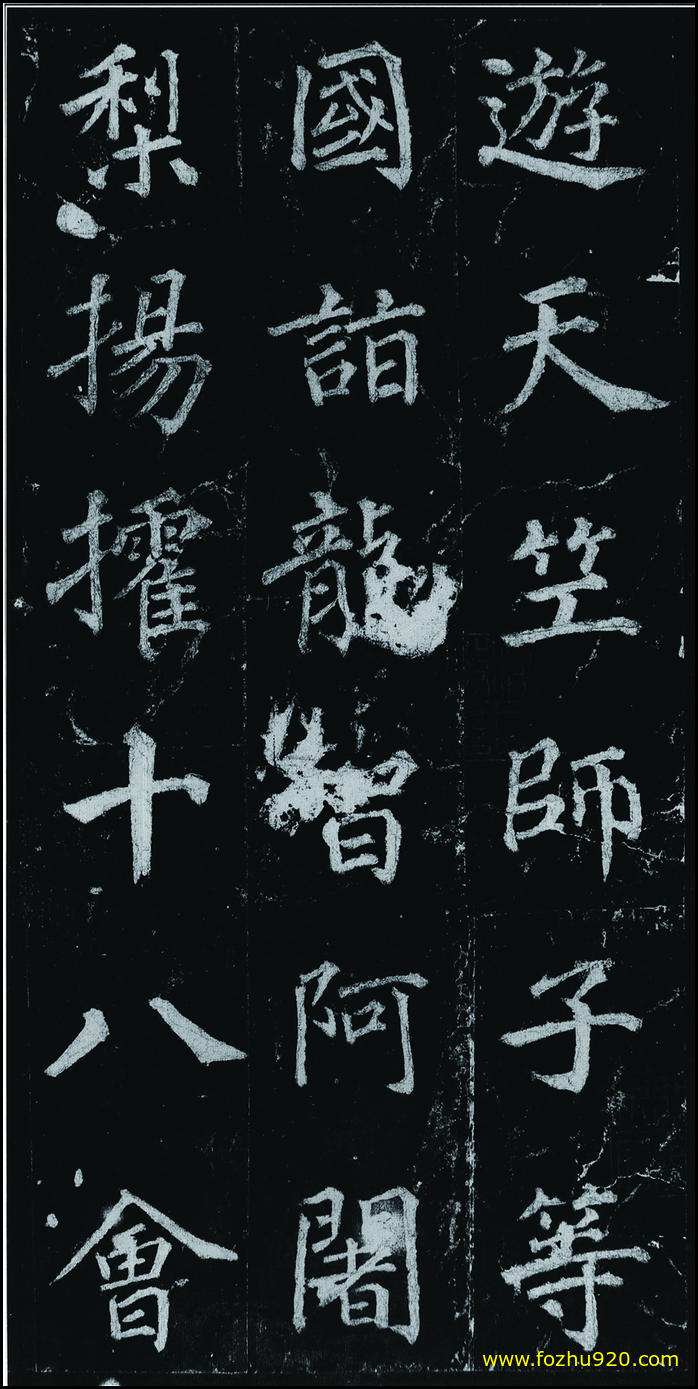 遊天竺師子等
國詣龍智阿闍
梨揚搉十八會
www.fozhu920.com